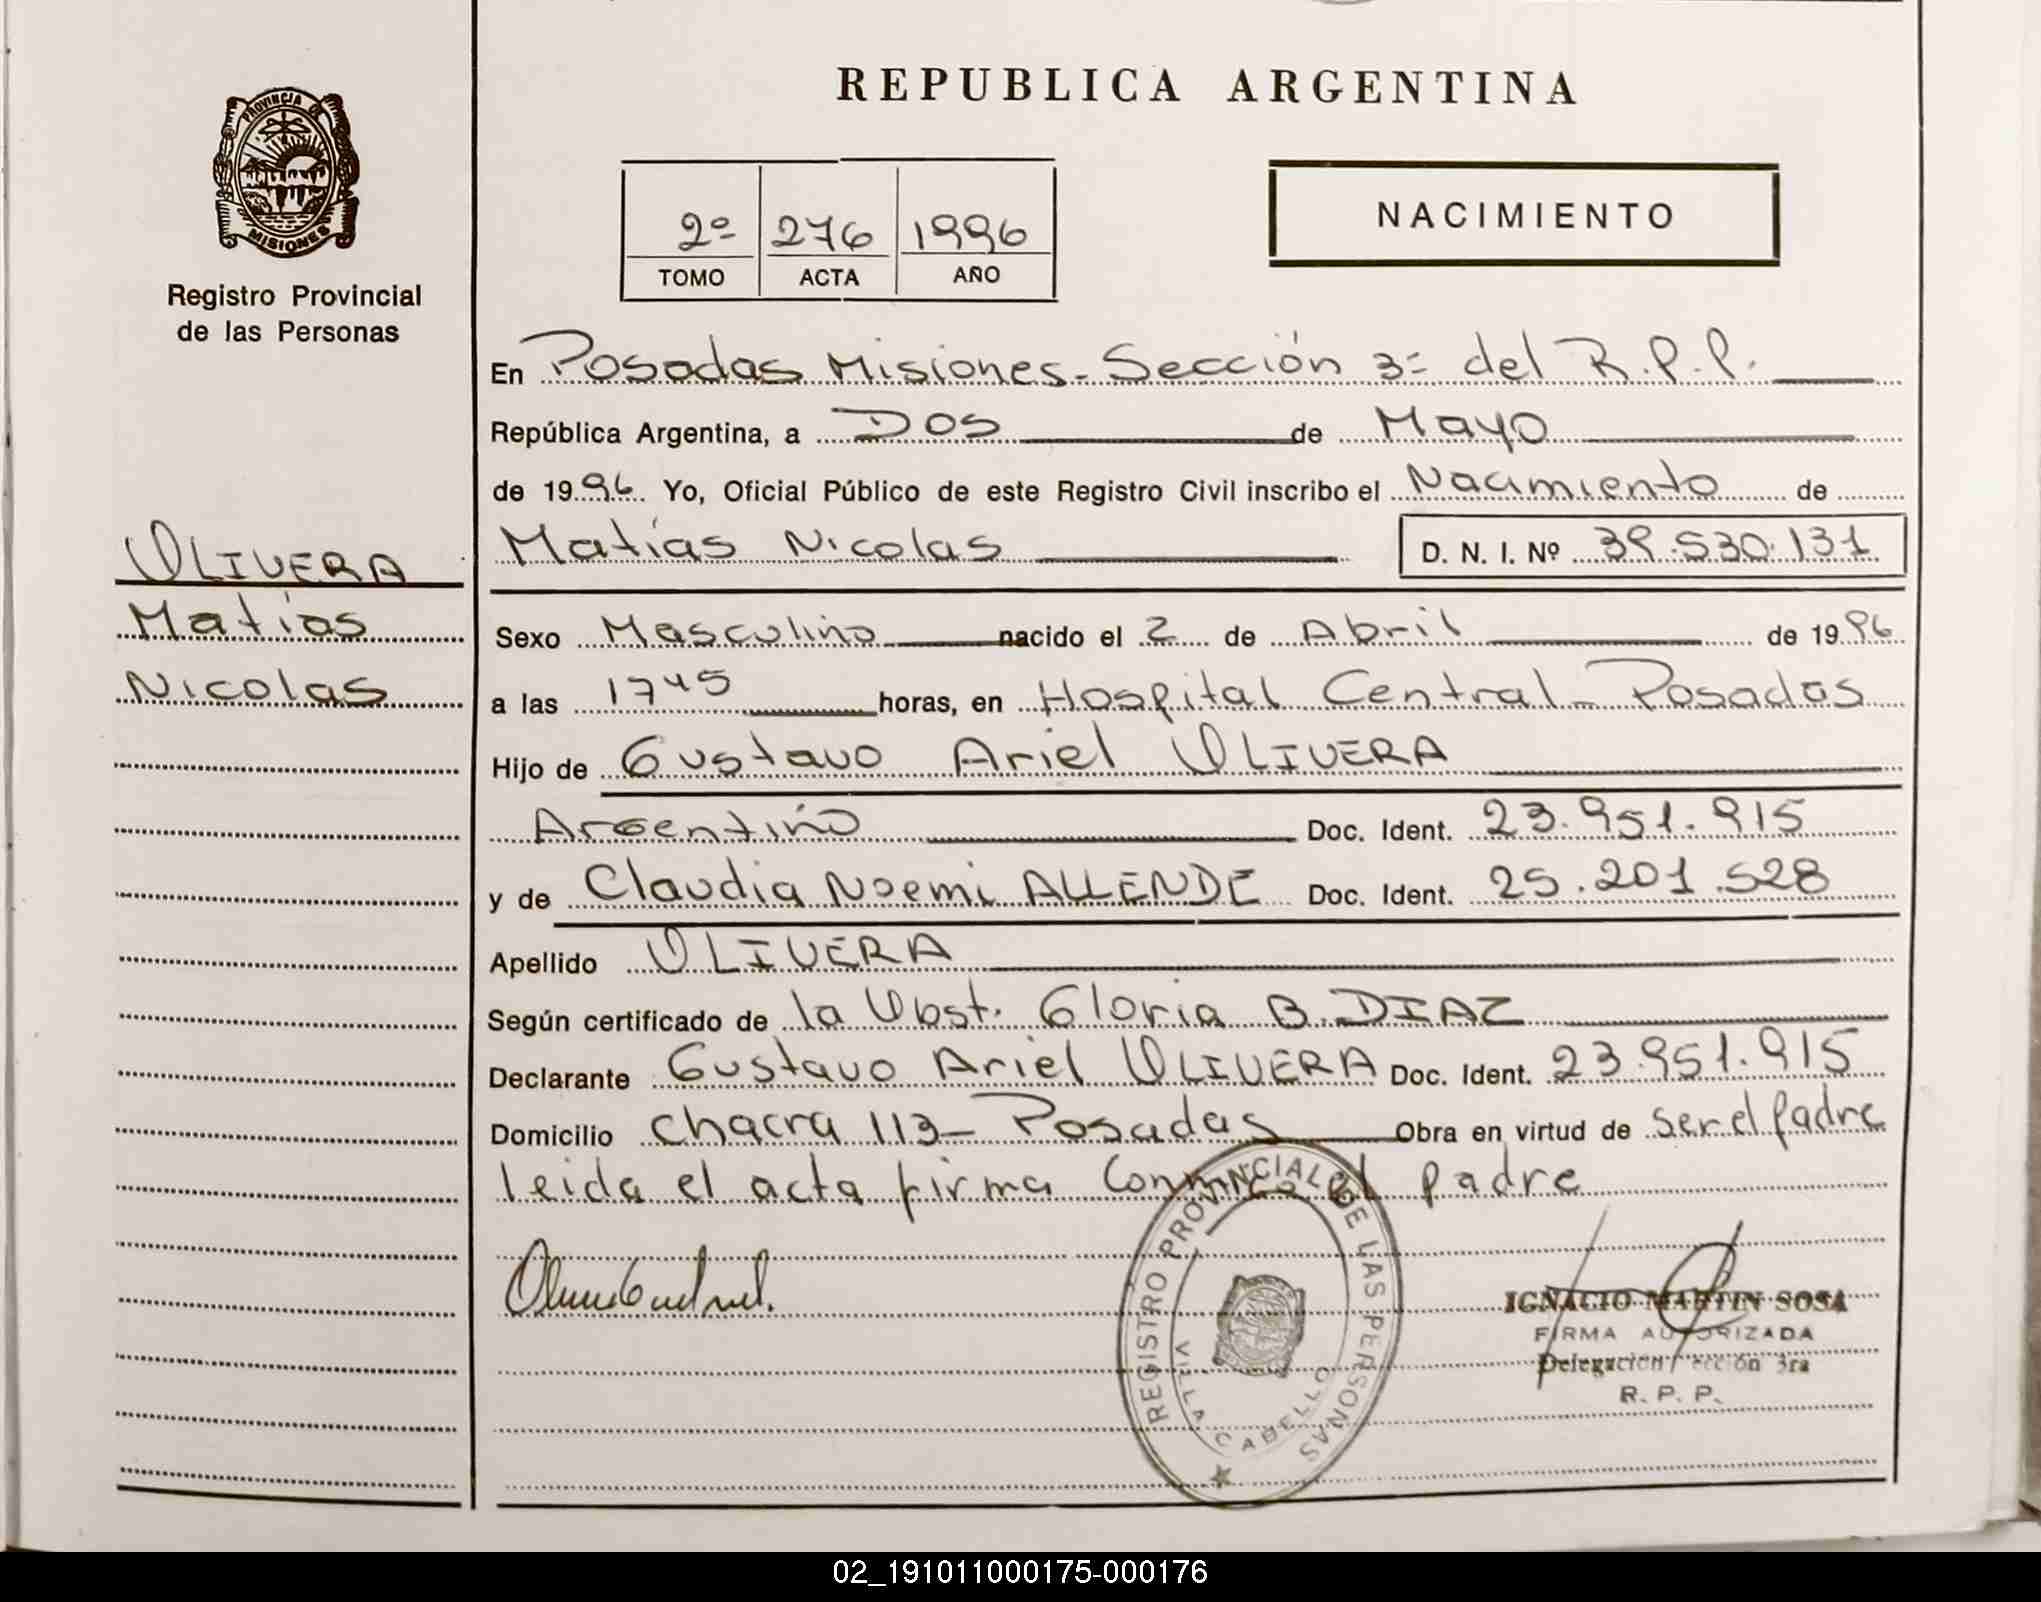 REPUBLICA ARGENTINA
PROVINCIA DE MISIONES
Registro Provincial
de las Personas
2º 276 1996
TOMO ACTA AÑO
NACIMIENTO
OLIVERA
Matías
Nicolas
En Posadas Misiones - Sección 3= del R.P.P.
República Argentina, a Dos de Mayo
de 1996 Yo, Oficial Público de este Registro Civil inscribo el Nacimiento de
Matías Nicolas D. N. I. Nº 39.530.131
Sexo Masculino nacido el 2 de Abril de 1996
a las 1745 horas, en Hospital Central - Posadas
Hijo de Gustavo Ariel OLIVERA
Argentino Doc. Ident. 23.951.915
y de Claudia Noemi ALLENDE Doc. Ident. 25.201.528
Apellido OLIVERA
Según certificado de la Obst. Gloria B. DIAZ
Declarante Gustavo Ariel OLIVERA Doc. Ident. 23.951.915
Domicilio Chacra 113 - Posadas Obra en virtud de ser el padre
leida el acta firma Conmigo el padre
REGISTRO PROVINCIAL DE LAS PERSONAS
VILLA CABELLO
IGNACIO MARTIN SOSA
FIRMA AUTORIZADA
Delegación Sección 3ra
R. P. P.
02_191011000175-000176